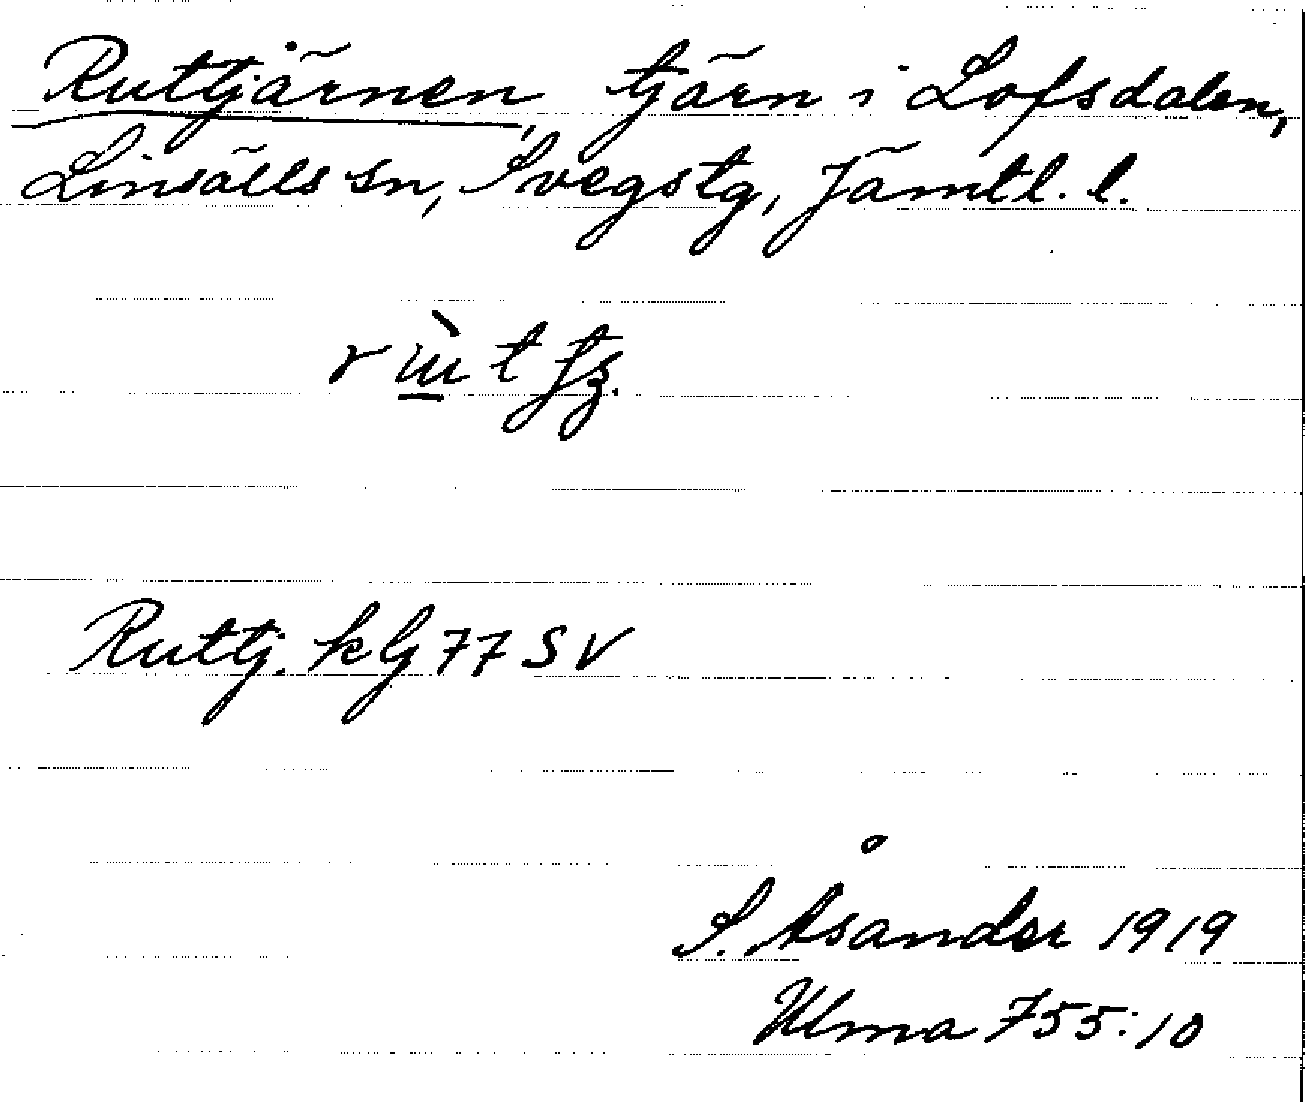 Ruttjärnen, tjärn i Lofsdalen,
Linsälls sn, Svegs tg, Jämtl. l.
Ruttj. kbl 77 SV
S. Åsander 1919
Ulma 755:10